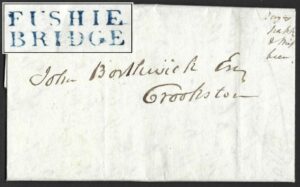 FUSHIE
BRIDGE
John Borthwick Esq
Crookston